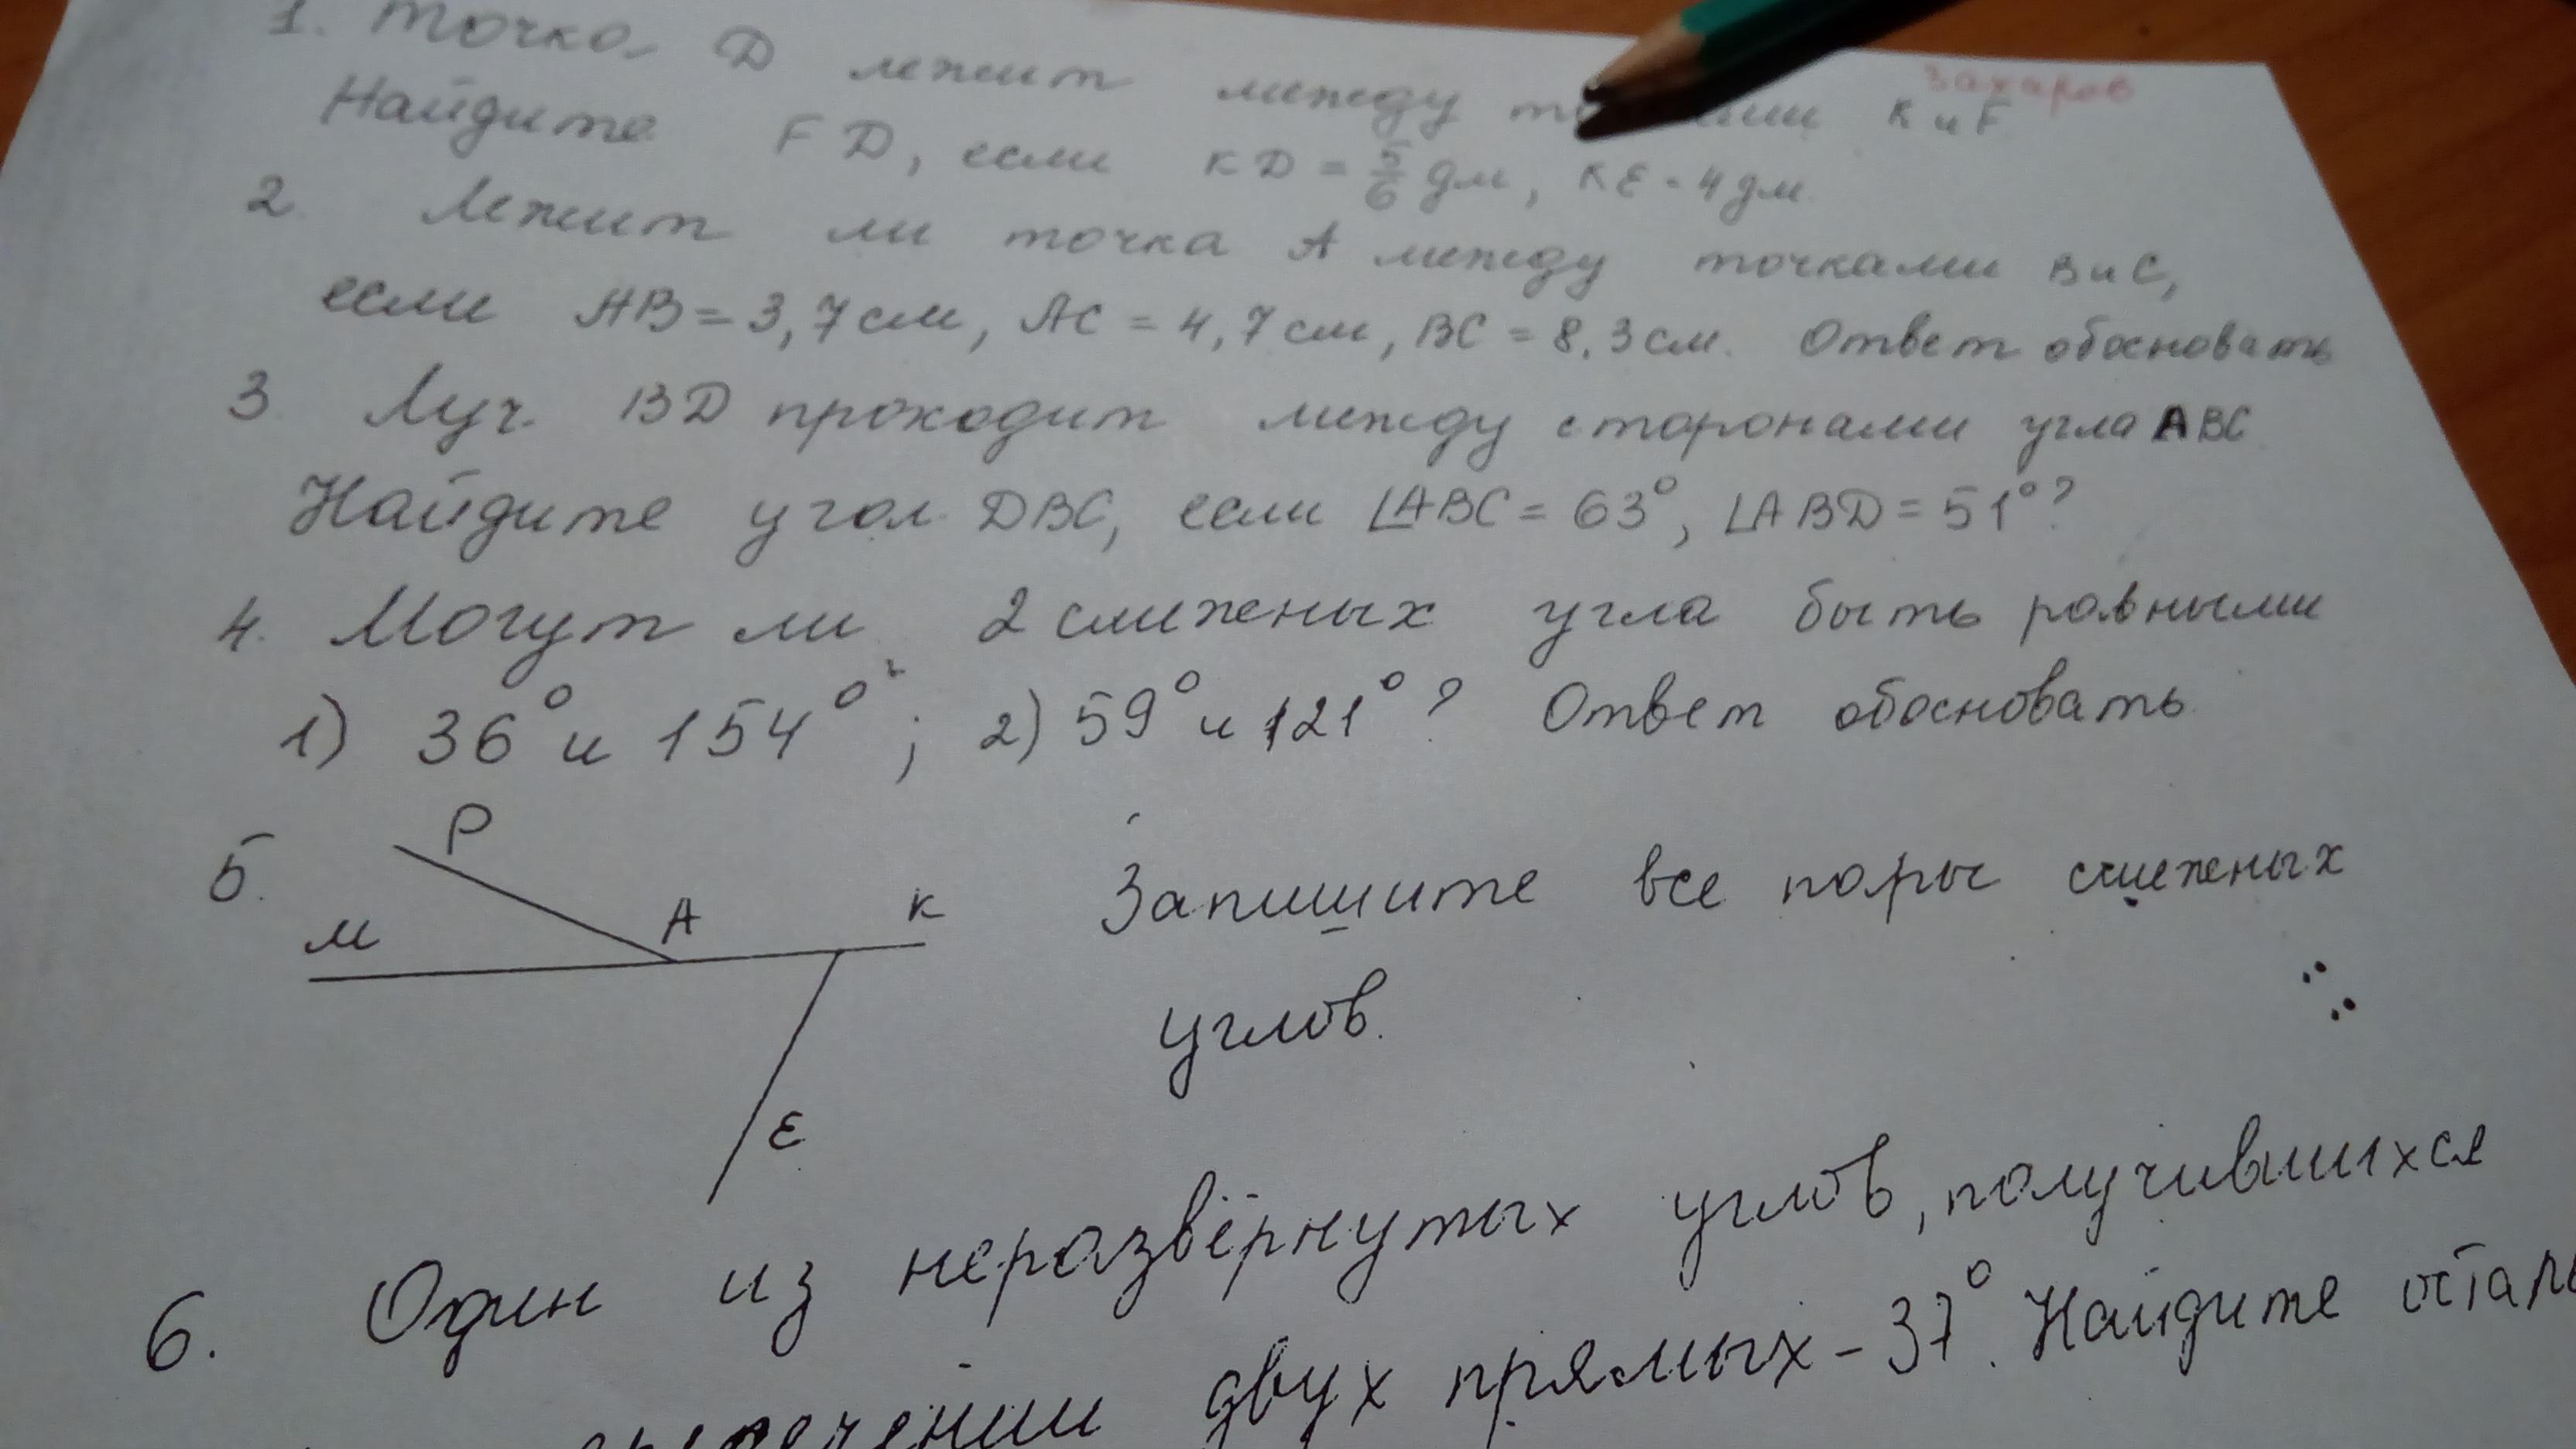 Захаров
1. Точка D лежит между точками K и F
Найдите FD, если KD = 5/6 дм, KE = 4 дм.
2. Лежит ли точка A между точками B и C,
если AB = 3,7 см, AC = 4,7 см, BC = 8,3 см. Ответ обосновать
3. Луч BD проходит между сторонами угла ABC
Найдите угол DBC, если ∠ABC = 63°, ∠ABD = 51°?
4. Могут ли 2 смеженых угла быть равными
1) 36° и 154°; 2) 59° и 121°? Ответ обосновать
5.
P
M
A
K
E
Запишите все пары смеженых
углов.
6. Один из неразвёрнутых углов, получившихся
двух прямых - 37°. Найдите